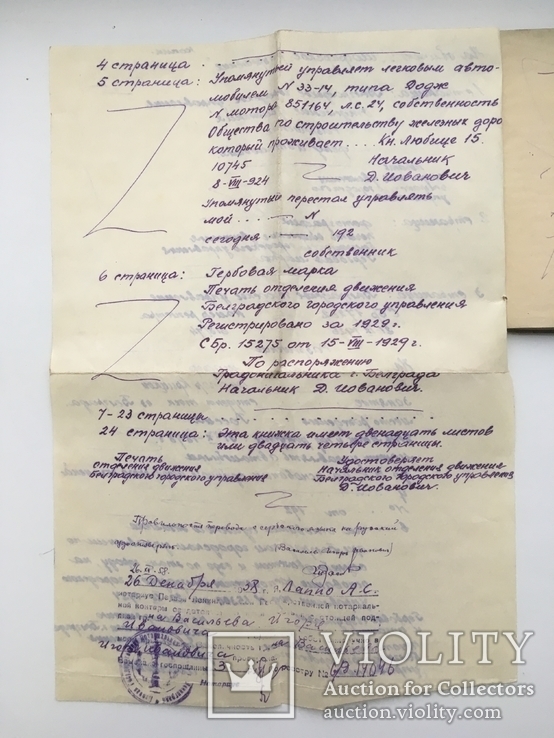 4 страница
5 страница: Упомянутый управляет легковым авто-
мобилем N 33-14, типа Додж
N мотора 851164, л.с. 24, собственность
Общества по строительству железных доро
который проживает.... Кн. Любице 15.
10745 Начальник
8-VIII-924 Д. Иованович
Упомянутый перестал управлять
мой N
сегодня 192
собственник
6 страница: Гербовая марка
Печать отделения движения
Белградского городского управления
Регистрировано за 1929 г.
С Бр. 15275 от 15-VIII-1929 г.
По распоряжению
Градоначальника г. Белграда
Начальник Д. Иованович.
7-23 страницы
24 страница: Эта книжка имеет двенадцать листов
или двадцать четыре страницы.
Печать Удостоверяет
отделения движения Начальник отделения движения
Белградского городского управления Белградского городского управления
Д. Иованович.
Правильность перевода с сербского языка на русский
удостоверяю
26 Декабря 58 г. Лаппо А.С.
нотариус
Васильева Игоря
Ивановича
VIOLITY
Auction for Collectors
auction.violity.com